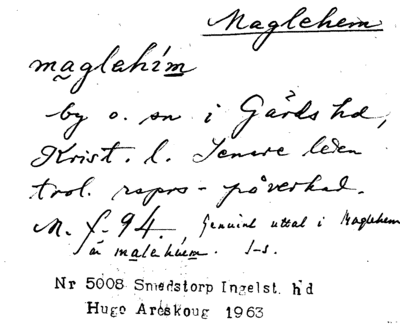 Maglehem
maglahím
by o. sn i Gärds hd,
Krist. l. Senare leden
trol. rsprs-påverkad.
M. f. 94. Genuint uttal i Maglehem
är malehäem. I-s.
Nr 5008 Smedstorp Ingelst. hd
Hugo Areskoug 1963